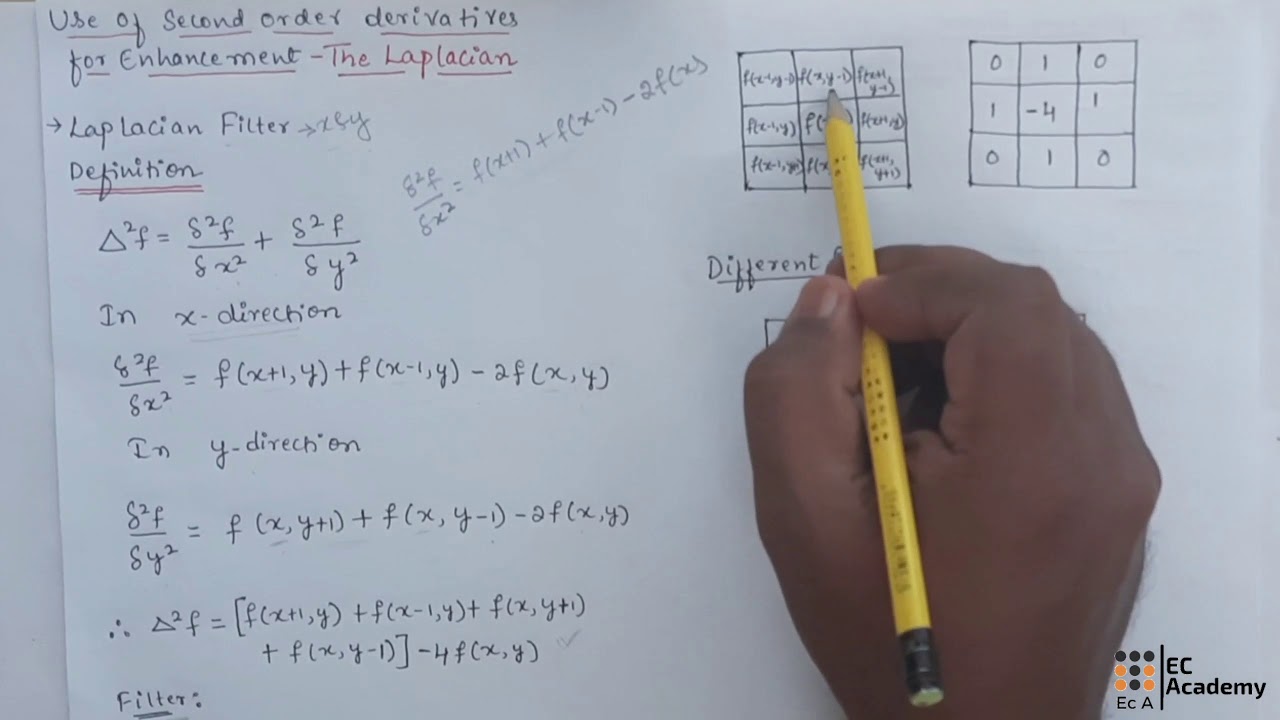 Use of Second order derivatives
for Enhancement - The Laplacian
→ Laplacian Filter → x&y
Definition
δ²f/δx² = f(x+1) + f(x-1) - 2f(x)
Δ²f = δ²f/δx² + δ²f/δy²
In x-direction
δ²f/δx² = f(x+1,y) + f(x-1,y) - 2f(x,y)
In y-direction
δ²f/δy² = f(x,y+1) + f(x,y-1) - 2f(x,y)
∴ Δ²f = [f(x+1,y) + f(x-1,y) + f(x,y+1)
+ f(x,y-1)] - 4f(x,y)
Filter:
f(x-1,y-1) f(x,y-1) f(x+1,y-1)
f(x-1,y) f(x+1,y)
f(x+1,y+1)
0 1 0
1 -4 1
0 1 0
Different
EC
Academy
Ec A